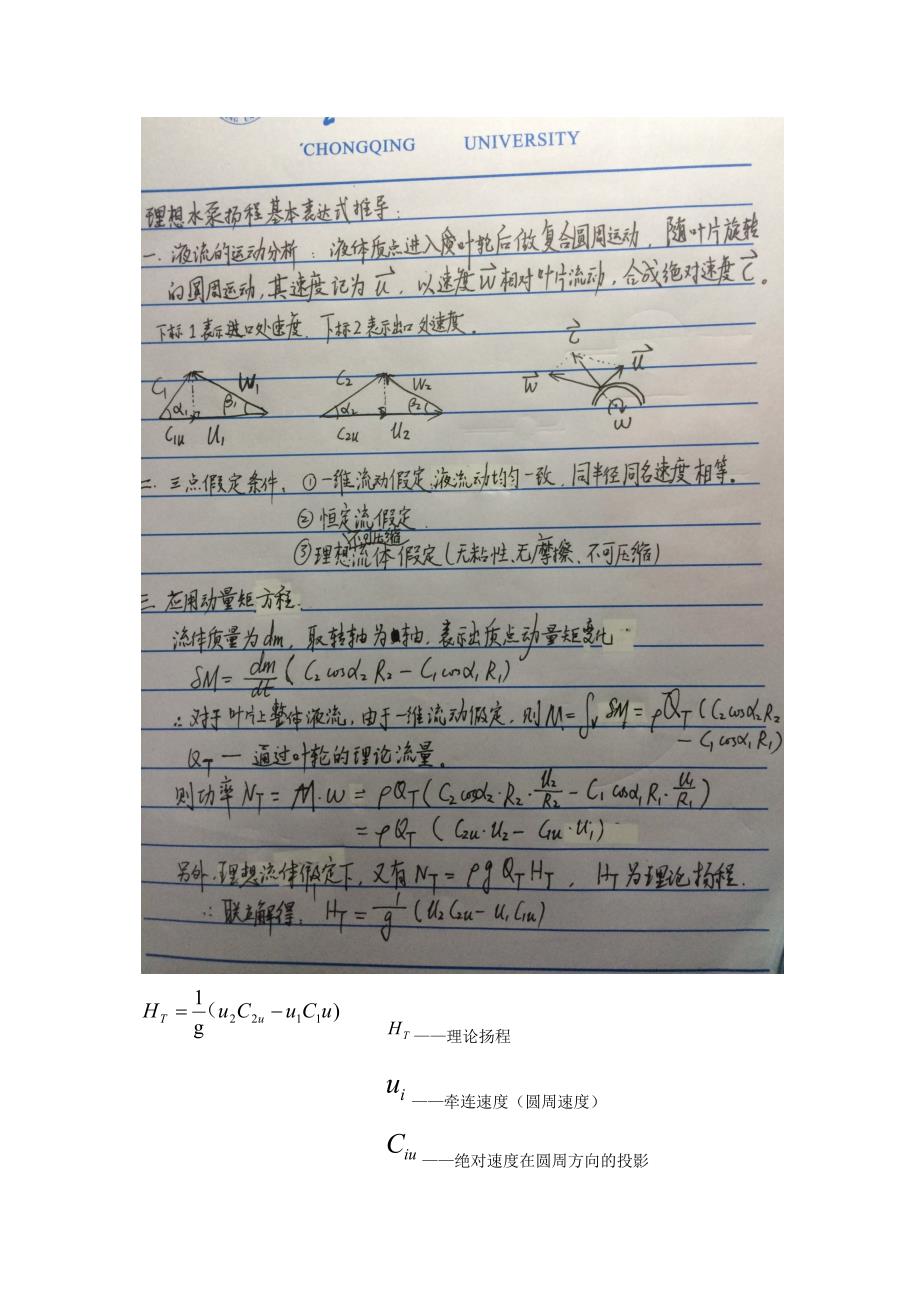 CHONGQING UNIVERSITY
理想水泵扬程基本表达式推导:
一. 液流的运动分析: 液体质点进入叶轮后做复合圆周运动, 随叶片旋转
的圆周运动, 其速度记为 u⃗, 以速度 w⃗ 相对叶片流动, 合成绝对速度 c⃗。
下标1表示进口处速度. 下标2表示出口处速度。
C₁ W₁ α₁ β₁ C₁u U₁
C₂ W₂ α₂ β₂ C₂u U₂
c⃗ u⃗ w⃗ ω
二. 三点假定条件、①一维流动假定.液流动均匀一致, 同半径同名速度相等。
②恒定流假定.
不可压缩
③理想流体假定(无粘性、无摩擦、不可压缩)
三. 应用动量矩方程.
流体质量为dm, 取转轴为轴. 表示出质点动量矩变化
δM = dm/dt (C₂cosα₂R₂ - C₁cosα₁R₁)
∴对于叶片上整体液流, 由于一维流动假定, 则 M = ∫ᵥ δM = ρQ_T (C₂cosα₂R₂
- C₁cosα₁R₁)
Q_T — 通过叶轮的理论流量。
则功率 N_T = M·ω = ρQ_T (C₂cosα₂·R₂·U₂/R₂ - C₁cosα₁R₁·U₁/R₁)
= ρQ_T (C₂u·U₂ - C₁u·U₁)
另外, 理想流体假定下, 又有 N_T = ρgQ_TH_T, H_T为理论扬程.
∴联立解得: H_T = 1/g (U₂C₂u - U₁C₁u)
H_T = 1/g (u₂C₂u - u₁C₁u)
H_T ——理论扬程
u_i ——牵连速度(圆周速度)
C_iu ——绝对速度在圆周方向的投影